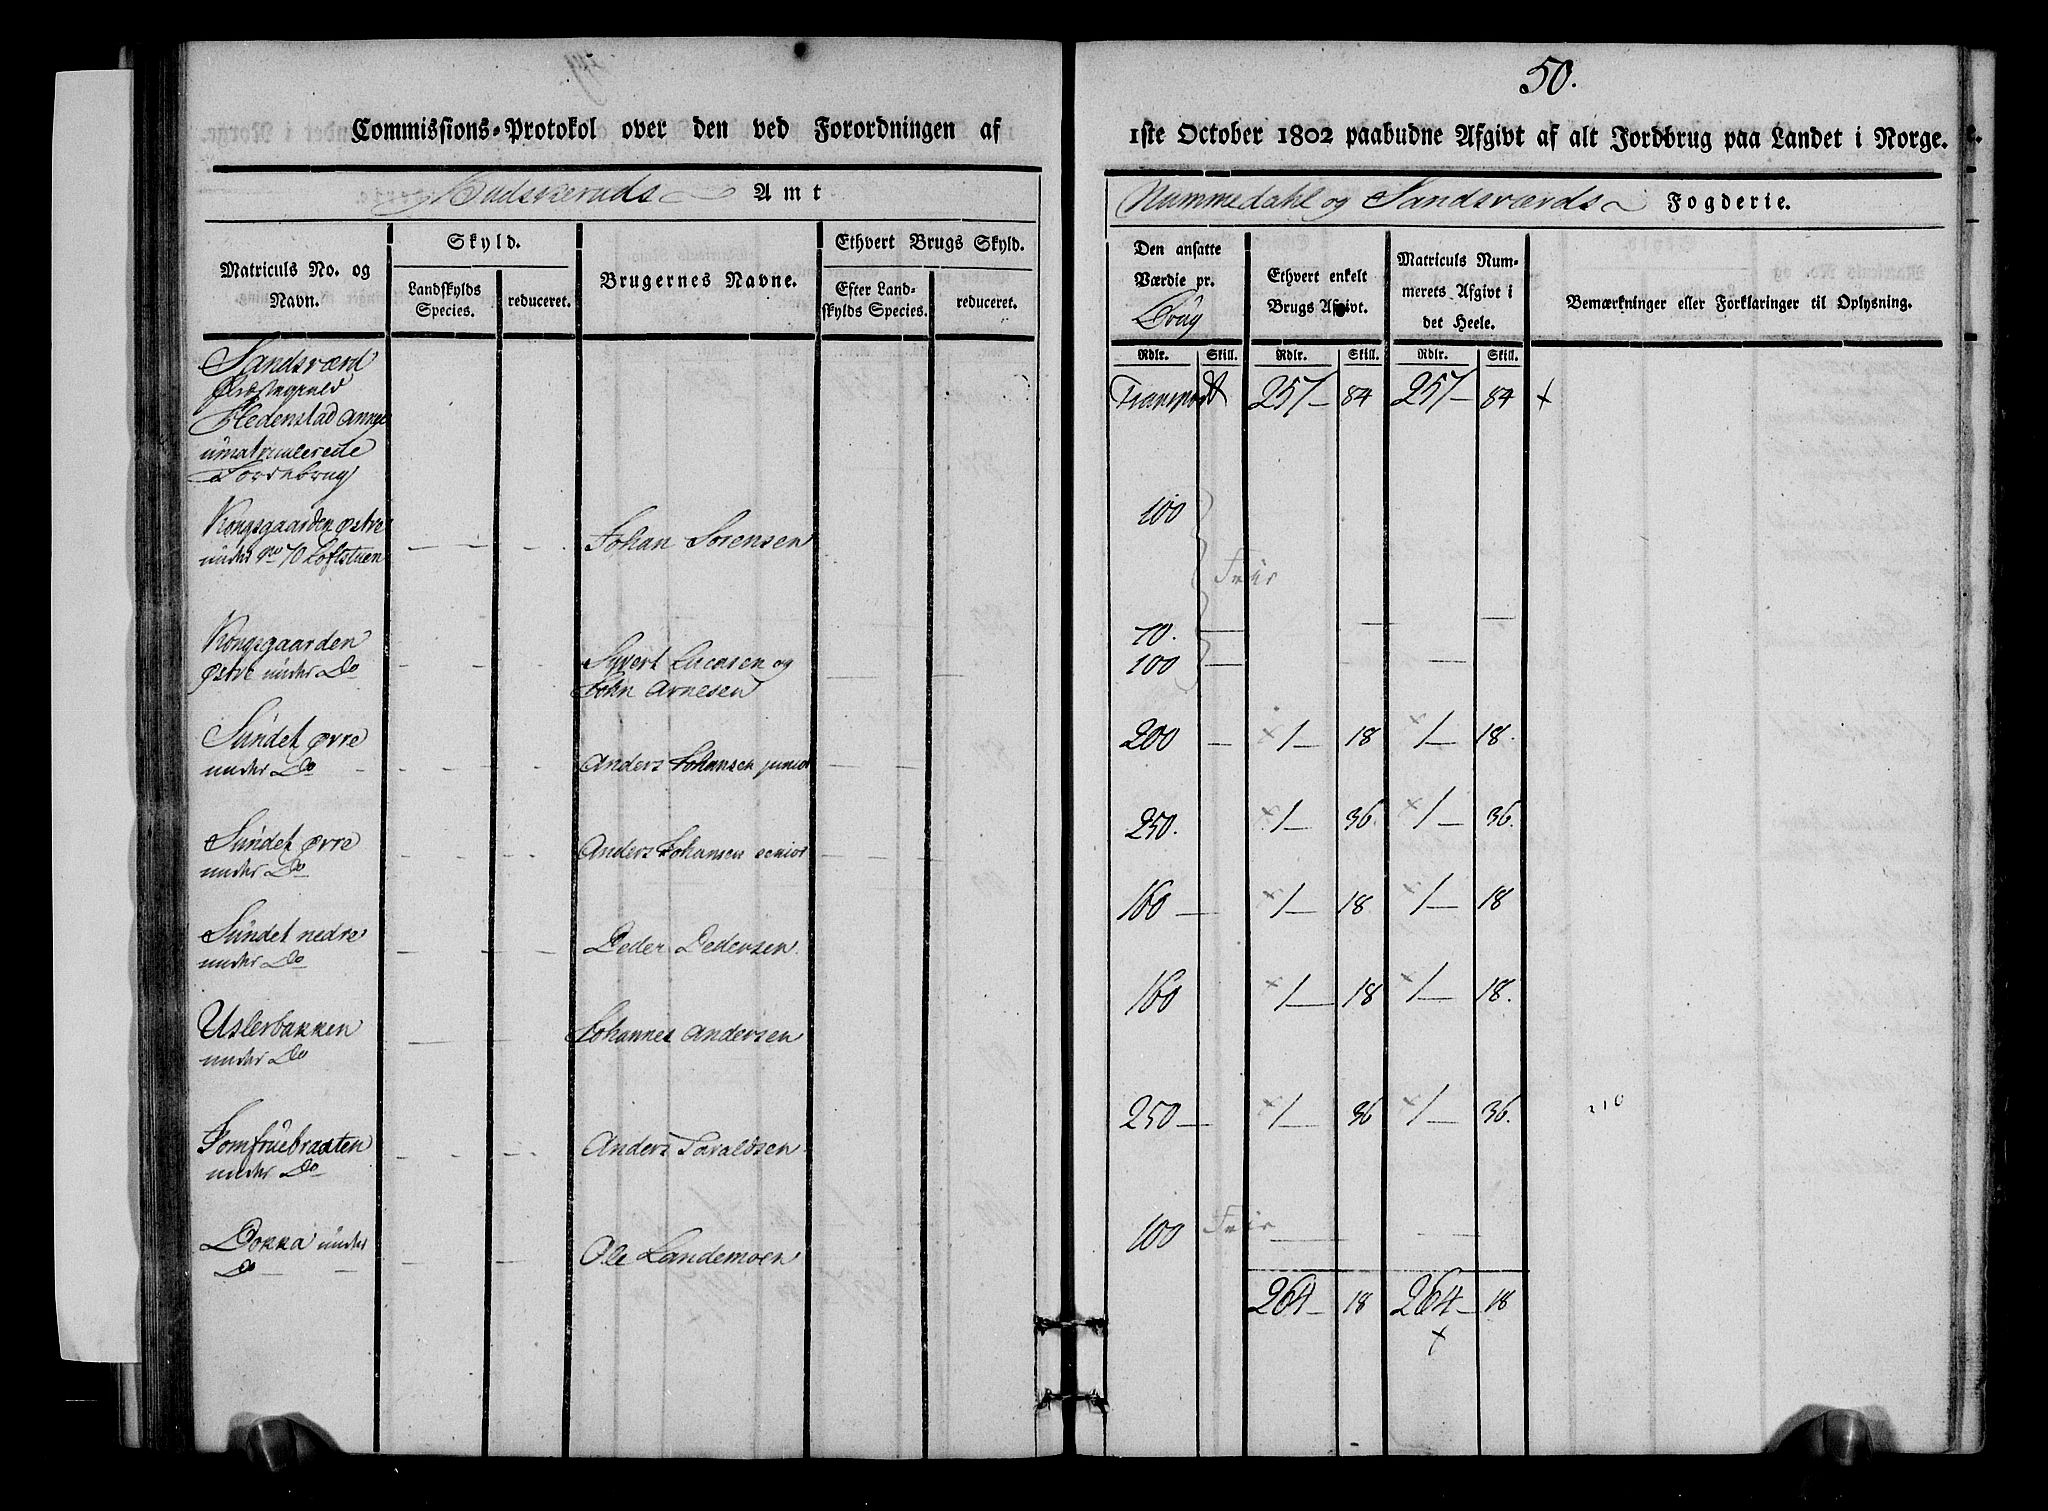 50.
Commissions-Protokol over den ved Forordningen af
1ste October 1802 paabudne Afgivt af alt Jordbrug paa Landet i Norge.
Budskeruds Amt
Nummedahl og Sandsværds Fogderie.
Matriculs No. og
Navn.
Skyld.
Landskylds
Species.
reduceret.
Brugernes Navne.
Ethvert Brugs Skyld.
Efter Land-
skylds Species.
reduceret.
Den ansatte
Værdie pr.
Brug
Ethvert enkelt
Brugs Afgivt.
Matriculs Num-
merets Afgivt i
det Heele.
Bemærkninger eller Forklaringer til Oplysning.
Rdlr. Skill. Rdlr. Skill. Rdlr. Skill.
Sandsværd
Præstegield
Hedenstad
umatriculerede
Jordebrug
Transport 257 – 84 257 – 84 +
Kongsgaarden østre
under No 70 Loftstuen
Johan Sørensen
100
Friir
10. —
Kongsgaarden
østre under Do
Syvert Lucasen og
John Arnesen
100 —
Sundet øvre
under Do
Anders Johansen junior
200 – 1 – 18 1 – 18.
Sundet øvre
under Do
Anders Johansen senior
250. 1 – 36. 1 – 36.
Sundet nedre
under Do
Peder Pedersen
160 – 1 – 18 1 – 18
Uslerbakken
under Do
Johannes Andersen
160 1 – 18 1 – 18.
Jomfruebraaten
under Do
Anders Taraldsen
250 – 1 – 36 1 – 36.
Dokka under
Do
Ole Landemoen
100 Friir
264 – 18 264 – 18
+